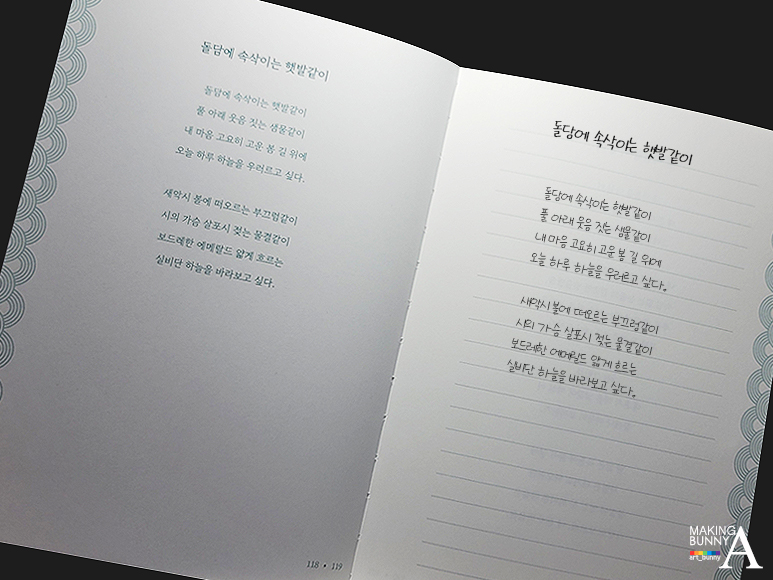 돌담에 속삭이는 햇발같이
돌담에 속삭이는 햇발같이
풀 아래 웃음 짓는 샘물같이
내 마음 고요히 고운 봄 길 위에
오늘 하루 하늘을 우러르고 싶다.
새악시 볼에 떠오르는 부끄럼같이
시의 가슴 살포시 젖는 물결같이
보드레한 에메랄드 얇게 흐르는
실비단 하늘을 바라보고 싶다.
118 • 119
돌담에 속삭이는 햇발같이
돌담에 속삭이는 햇발같이
풀 아래 웃음 짓는 샘물같이
내 마음 고요히 고운 봄 길 위에
오늘 하루 하늘을 우러르고 싶다.
새악시 볼에 떠오르는 부끄럼같이
시의 가슴 살포시 젖는 물결같이
보드레한 에메랄드 얇게 흐르는
실비단 하늘을 바라보고 싶다.
MAKING
BUNNY
art_bunny
A